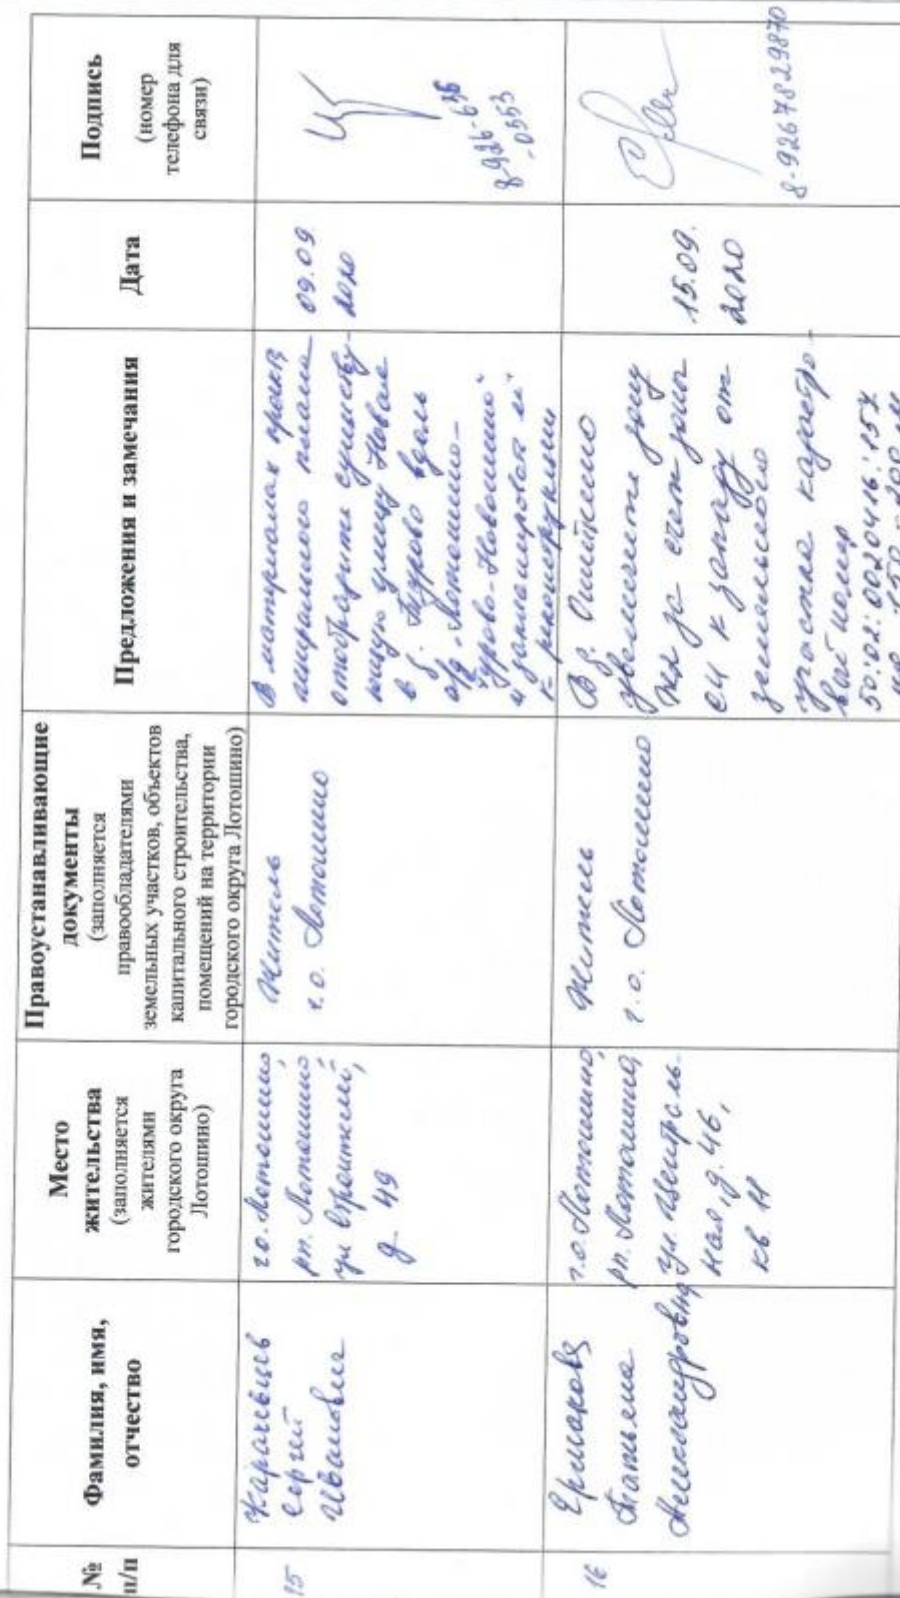 №
п/п
Фамилия, имя,
отчество
Место
жительства
(заполняется
жителями
городского округа
Лотошино)
Правоустанавливающие
документы
(заполняется
правообладателями
земельных участков, объектов
капитального строительства,
помещений на территории
городского округа Лотошино)
Предложения и замечания
Дата
Подпись
(номер
телефона для
связи)
15
Сергей
Иванович
г.о. Лотошино,
рп. Лотошино
ул
д. 49
Житель
г.о. Лотошино
В материалах проекта
плана
отобразить существу-
ющую улицу Новая
в д. вдоль
а/д "Лотошино-
Новошино"
и
09.09.
2020
8-926-636
-0553
16
Ермакова
Татьяна
Александровна
г.о. Лотошино,
рп. Лотошино,
ул. Централь-
ная, д. 46,
кв. 11
Житель
г.о. Лотошино
В д. Ошейкино
зону
за счет зоны
к западу от
земельного
участка кадастро-
вый номер
50:02:0020416:157
на 150-200 м
15.09.
2020
8-9267829870